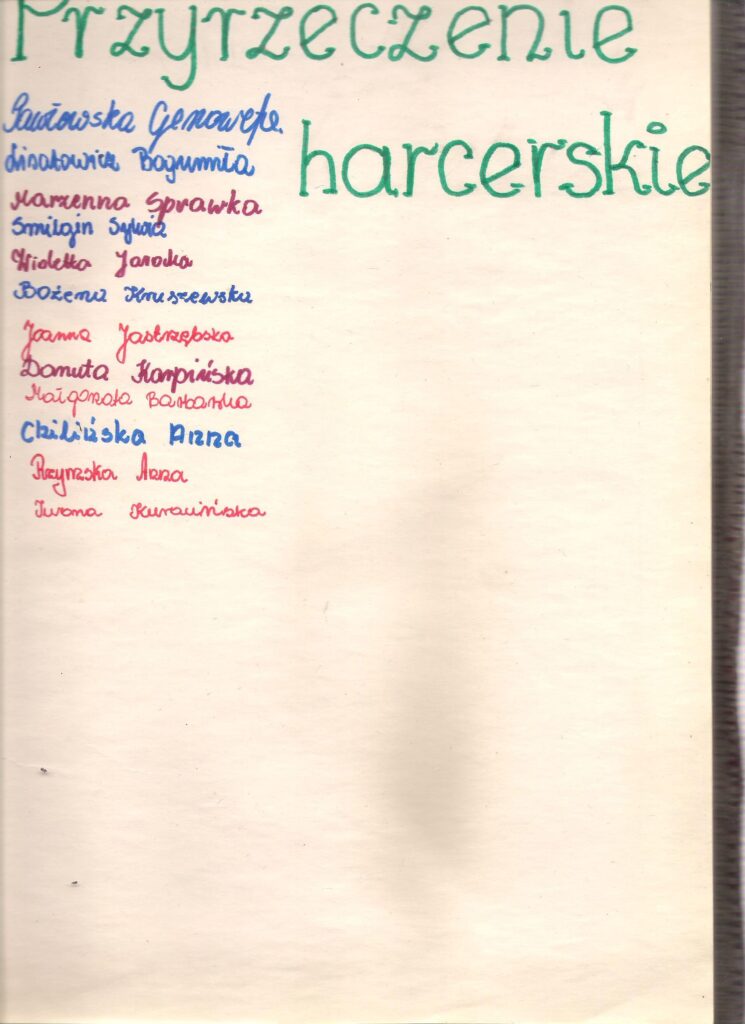 Przyrzeczenie
harcerskie
Pawłowska Genowefa
Lisatowicz Bogumiła
Marzenna Sprawka
Smilgin
Wioletta Jarocka
Bożena Kruszewska
Joanna Jastrzębska
Danuta Karpińska
Małgorzata
Chilińska Anna
Rzymska Anna
Iwona